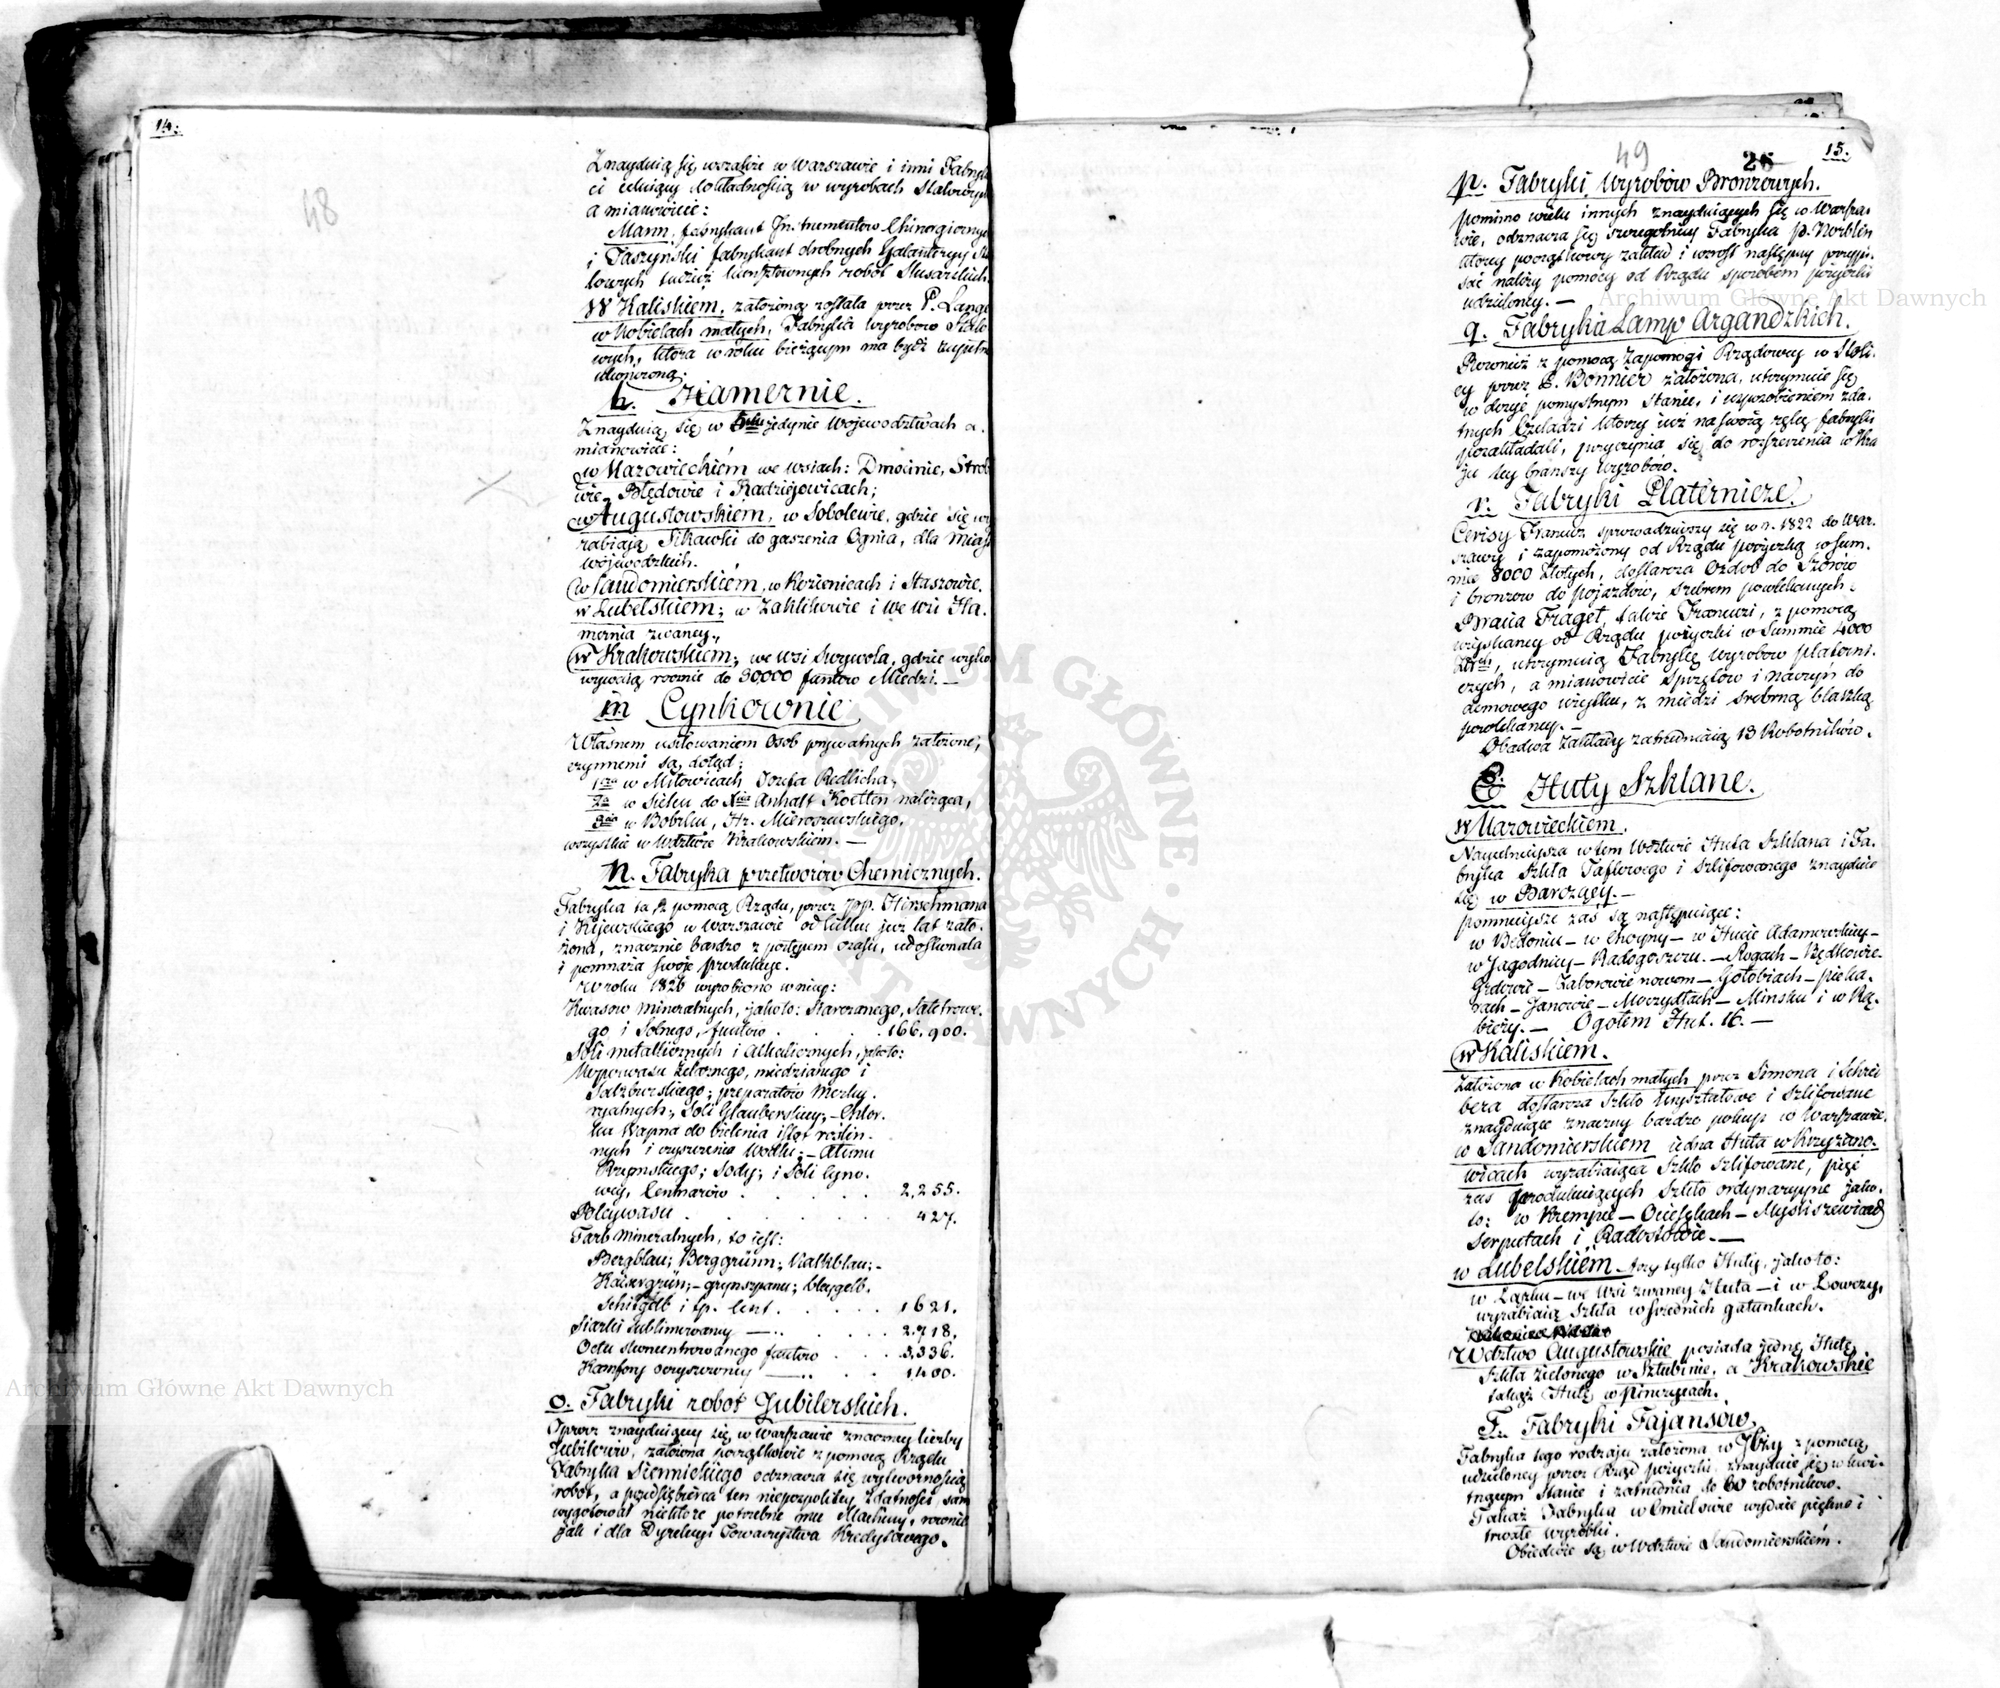 14.
48
Znayduią się wszakże w Warszawie i inni Fabryk
ci celuiący dokładnością w wyrobach Stalowych
a mianowicie:
Mann, fabrykant Instrumentów Chirurgicznych
i Taszyński fabrykant drobnych Galanteryy Sta
lowych tudzież kunsztownych robót Slusarskich.
W Kaliskiem, założoną została przez P. Lange
w Kobielach małych, Fabryka wyrobów Stalo
wych, która w roku bieżącym ma bydź zupełnie
ukończoną.
Hamernie.
Znayduią się w jedynie Województwach a.
mianowicie:
w Mazowieckiém we wsiach: Dmocinie, Strob
wie, Błędowie i Radziejowicach;
w Augustowskiem, w Sobolewie, gdzie się wy
rabiaią Sikawki do gaszenia Ognia, dla Miast
wojewodzkich.
w Sandomierskiém, w Kozienicach i Staszowie.
w Lubelskiem; w Zaklikowie i we wsi Ha.
mernia zwaney.,
w Krakowskiem; we wsi Suzywola, gdzie wyko
wywaią rocznie do 30,000 funtów Miedzi. —
m Cynkownie
Własnem usiłowaniem Osób prywatnych założone,
czynnemi są, dotąd;
1mo w Miłowicach Józefa Redlicha,
2do w Sielcu do Xcia Anhalt Koetten należąca,
3tio w Bobrku, Hr. Mieroszewskiego,
wszystkie w Wdztwie Krakowskiém. —
n. Fabryka przetworów Chemicznych.
Fabryka ta z pomocą Rządu, przez pp. Hirschmana
i Kijewskiego w Warszawie od kilku już lat zało.
żona, znacznie bardzo z postępem czasu, udoskonala
i pomnaża swoje produkcye.
W roku 1826 wyrobiono w niey:
Kwasów mineralnych, jakoto: Siarczanego, Saletrowe.
go i Solnego, funtów . . . . 166,900.
Soli metallicznych i Alkalicznych, jakoto:
Koperwasu żelaznego, miedzianego i
Salzburskiego; preparatów Merku.
ryalnych; Soli Glauberskiey; — Chlor.
ku Wapna do bielenia istot roślin.
nych i czyszczenia Wódki; — Ałunu
Rzymskiego; Sody; i Soli Cyno.
wey, Centnarów . . . . . . 2,255.
Oleywasu . . . . . . . 427.
Farb mineralnych, to jest:
Bergblau; Berggrünn; Kalkblau; -
Kaisergrün; — grynszpanu; bleygelb.
Schitgelb i t.p. Cent. . . . . . 1621.
Siarki sublimowaney — . . . . 2,718.
Octu skoncentrowanego funtów . . . 3,336.
Kamfory oczyszczoney — . . . 1,400.
o. Fabryki robót Jubilerskich.
Oprócz znayduiącey się w Warszawie znaczney liczby
Jubilerów, założona początkowie z pomocą Rządu
Fabryka Siennickiego odznacza się wytwornością
robót, a przedsiębierca ten niepospolitey zdatności, sam
wygotował niektóre potrzebne mu Machiny, równie
jak i dla Dyrekcyi Towarzystwa Kredytowego.
49
26
15.
p. Fabryki Wyrobów Bronzowych.
Pomimo wielu innych znayduiących się w Warsza.
wie, odznacza się szczególniey Fabryka p. Norblin
którey początkowy zakład i wzrost następny przypi.
sać należy pomocy od Rządu sposobem pożyczki
udzieloney. —
q. Fabryka Lamp Argandzkich.
Również z pomocą Zapomogi Rządowey w Stoli.
cy przez P. Bonnier założona, utrzymuie się
w dosyć pomyślnym Stanie, i usposobieniem zda.
tnych Czeladzi którzy już na swoią rękę fabryki
pozakładali, przyczynia się do rozszerzenia w Kra
ju tey branszy wyrobów.
r. Fabryki Platernicze.
Cerisy Francuz sprowadziwszy się w r. 1822 do War.
szawy i zapomożony od Rządu pożyczką w Sum.
mie 8000 Złotych, dostarcza Ozdób do Szorów
i bronzow do pojazdów, srebrem powlekanych.
Bracia Fraget, także Francuzi, z pomocą
uzyskaney od Rządu pożyczki w Summie 4000
Złotch, utrzymuią Fabrykę wyrobów platerni.
czych, a mianowicie Sprzętów i naczyń do
domowego użytku, z miedzi srebrną blaszką
powlekaney. —
Obadwa Zakłady zatrudniaią 13 Robotników.
S. Huty Szklane.
w Mazowieckiém.
Naycelnieysza w tem Wdztwie Huta Szklana i Fa.
bryka Szkła Taflowego i Szlifowanego znayduie
się w Barczący. —
pomnieysze zaś są następuiące:
w Bedoniu — w Choyny — w Hucie Adamowskiey —
w Jagodnicy — Radogoszczu. — Rogach — Rędkowie.
Grdowie — Zaborowie nowem — Gołobiach — pieka.
rach — Janowie — Moczydłach — Minsku i w Rą.
bieży. — Ogółem Hut. 16. —
w Kaliskiem.
Założona w Kobielach małych przez Simona i Schrei
bera dostarcza Szkło kryształowe i Szlifowane
znayduiące znaczny bardzo pokup w Warszawie.
w Sandomierskiem jedna Huta w Krzyżano.
wicach wyrabiaiąca Szkło Szlifowane, pięć
zaś produkuiących Szkło ordynaryyne jako.
to: w Krempie — Ociesękach — Mysliszewicach
Serputach i Radostowie. —
w Lubelskiém trzy tylko Huty, jakoto:
w Łążku — we Wsi zwaney Huta — i w Łowczy,
wyrabiaią Szkła w średnich gatunkach.
Wdztwo Augustowskie posiada jednę Hutę
Szkła zielonego w Sztubinie, a Krakowskie
takąż Hutę w Pinczycach.
T. Fabryki Fajansów.
Fabryka tego rodzaju założona w Iłży z pomocą
udzieloney przez Rząd pożyczki, znayduie się w kwi-
tnącym Stanie i zatrudnia do 60 robotników.
Takaż Fabryka w Cmielowie wydaie piękne i
trwałe wyrobki.
Obiedwie są w Wdztwie Sandomierskiém.
Archiwum Główne Akt Dawnych
Archiwum Główne Akt Dawnych
ARCHIWUM GŁÓWNE AKT DAWNYCH